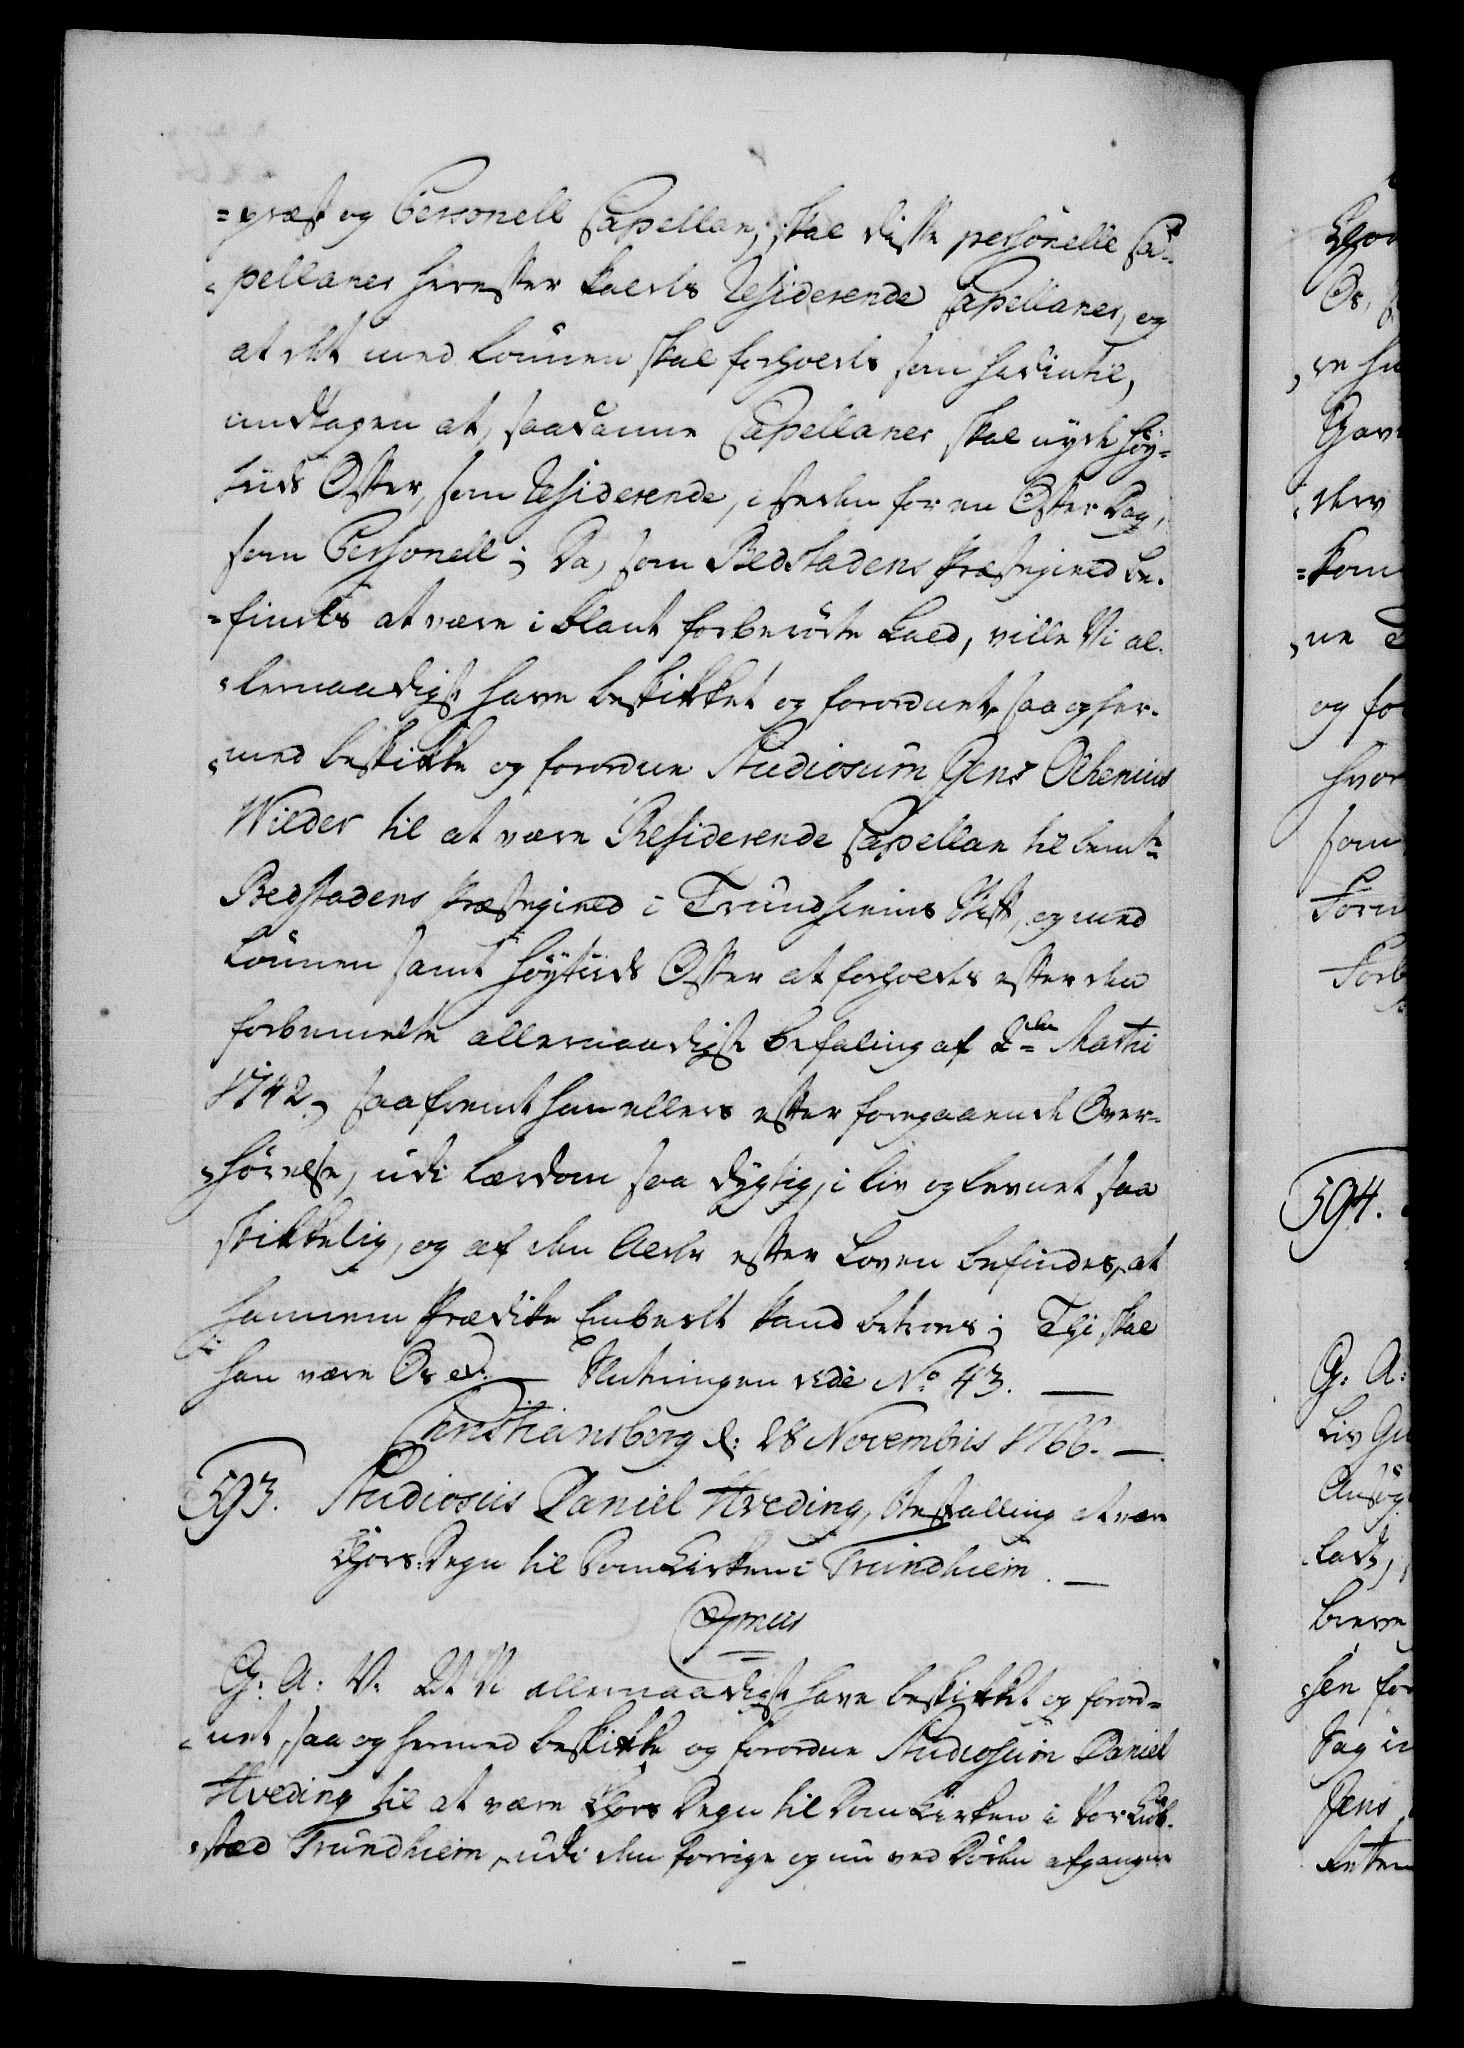 =præst og Personell Capellan, skal disse personelle Ca-
-pellaner herefter kaldes Residerende Capellaner, og
at det med Lønnen skal forholdes som hidintil,
undtagen at, saadanne Capellaner skal nyde Høy-
tiids Offer, som Residerende, i steden for en Offer Dag,
som Personell; Da, som Bedstadens Præstegield be-
=findes at være i blant forberørte Kald, ville Vi al-
-lernaadigst have beskikket og forordnet, saa og her-
-med beskikke og forordne Studiosum Jens Ochenius
Wilder til at være Residerende Capellan til bemte
Bedstadens Præstegield i Trundhiems Stift, og med
Lønnen samt Høytiids Offer at forholdes efter den
forbemelte allernaadigste Befaling af 2den Martii
1742, saafremt han ellers efter foregaaende Over-
-hørelse, udi Lærdom saa dygtig, i Liv og levnet saa
skikkelig, og af den Alder efter Loven befindes, at
hannem Prædike Embedet kand betroes; Thi skal
han være Os ec. — Slutningen vide No 43. —
Christiansberg d: 28 Novembris 1766. —
593. Studiosus Daniel Hveding, Bestalling at være
Chors-Degn til Dom Kirken i Trundhiem. —
Gratis
G: A: V: At Vi allernaadigst have beskikket og forord-
-net, saa og hermed beskikke og forordne Studiosum Daniel
Hveding til at være Chors Degn til Dom Kirken i Vor Kiøb-
-sted Trundhiem, udi den forrige og nu ved Døden afgangne
594.